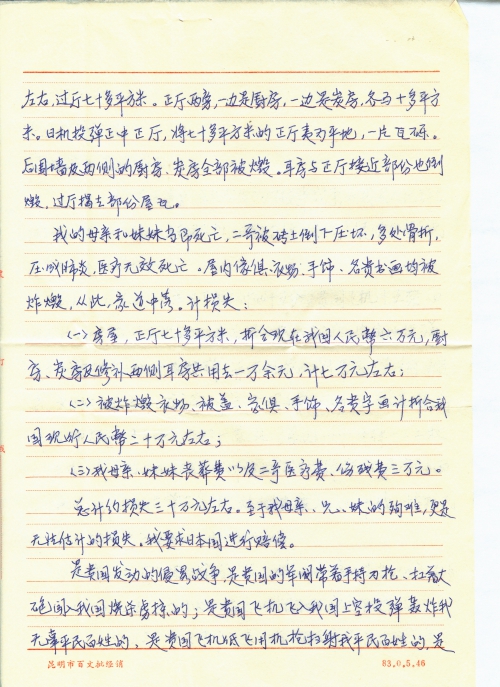 左右,过厅七十多平方米。正厅两旁,一边是厨房,一边是炭房,各为十多平方
米。日机投弹正中正厅,将七十多平方米的正厅夷为平地,一片瓦砾。
后围墙及两侧的厨房、炭房全部被燬。耳房与正厅接近部份也倒
燬,过厅揭去部份屋瓦。
我的母亲和妹妹当即死亡,二哥被砖土倒下压坏,多处骨折,
压成肺炎,医疗无效死亡。屋内傢俱、衣物、手饰、名贵书画均被
炸燬,从此,家道中落。计损失:
(一)房屋,正厅七十多平方米,折合现在我国人民幣六万元,厨
房、炭房及修补两侧耳房共用去一万余元,计七万元左右;
(二)被炸燬衣物、被盖、家俱、手饰、名贵字画计折合我
国现行人民幣二十万元左右;
(三)我母亲、妹妹丧葬费以及二哥医疗费、伤残费三万元。
总计约损失三十万元左右。至于我母亲、兄、妹的殉难,更是
无法估计的损失。我要求日本国进行赔偿。
是贵国发动的侵畧战争,是贵国的军阀带着手持刀枪、扛着大
砲闯入我国烧杀虏掠的;是贵国飞机飞入我国上空投弹轰炸我
无辜平民百姓的、是贵国飞机低飞用机枪扫射我平民百姓的,是
昆明市百文批经销
83.0.5.46